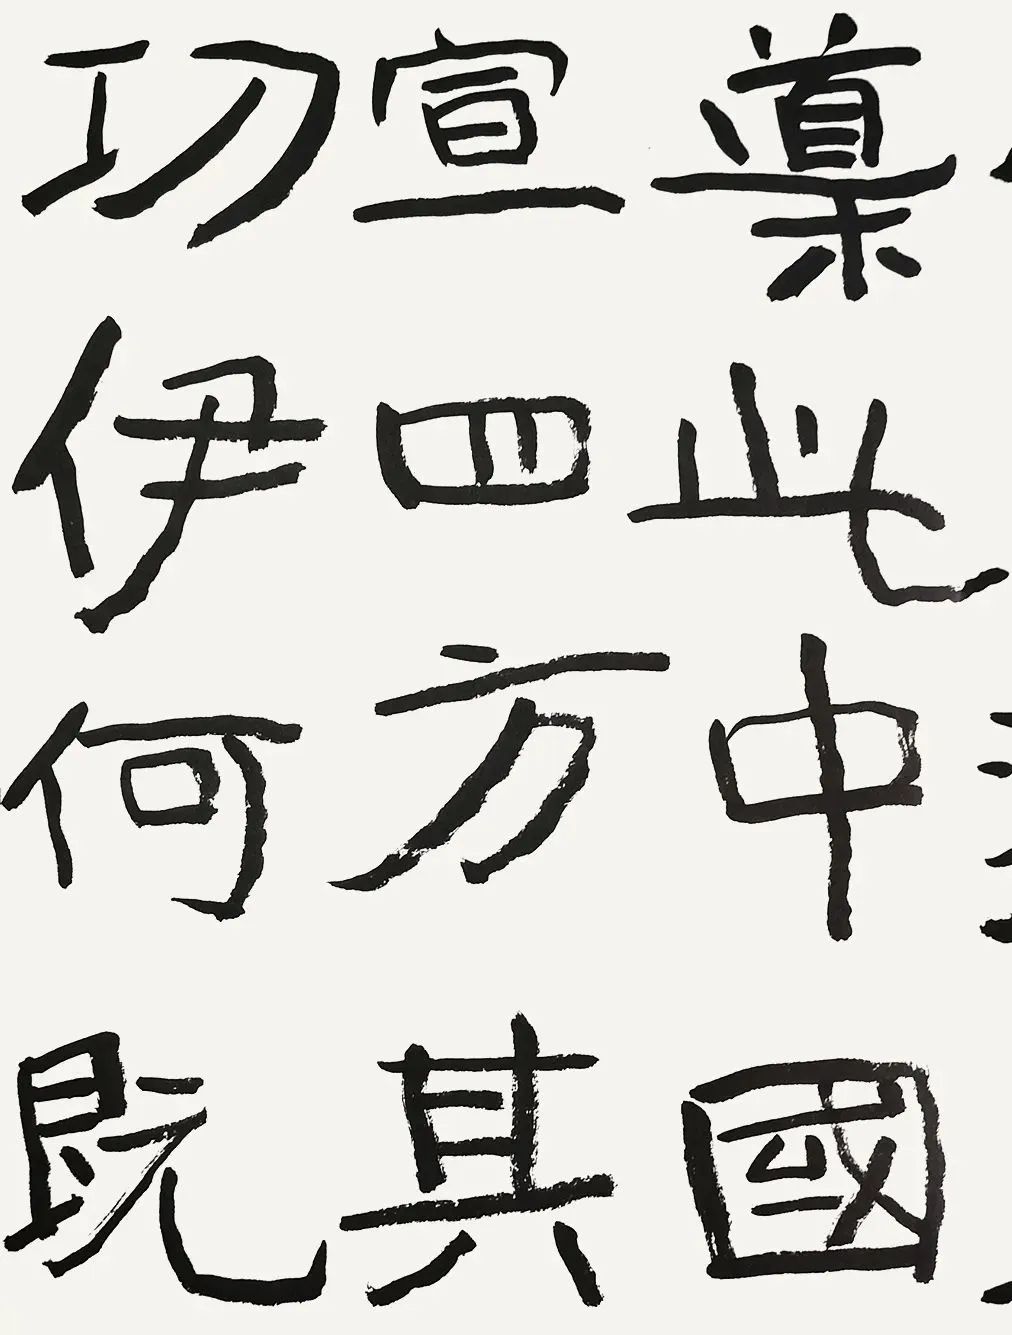 導此中國
宣四方其
功伊何既